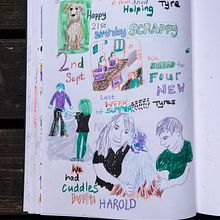 Helping Tyre
Happy
21st
Birthday SCRAPPY
2nd
Sept
We
FOUR
NEW
Tyres
Last
WEEK
of SUMMER
We
had
cuddles
with HAROLD